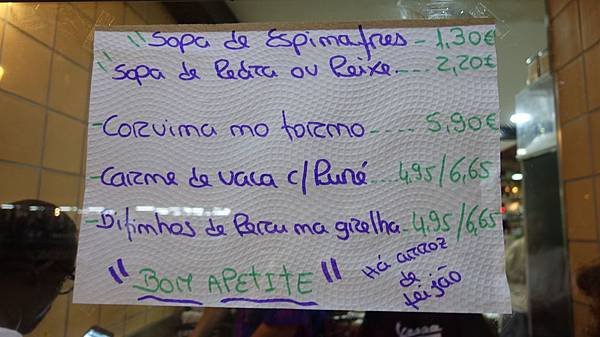 "Sopa de Espinafres - 1,30€
"Sopa de Pedra ou Peixe.... 2,20€
- Corvina no forno ...... 5,90€
- Carne de vaca c/Puré ... 4,95/6,65
- Bifinhos de Peru na grelha - 4,95/6,65
"BOM APETITE"
Há arroz
de
feijão